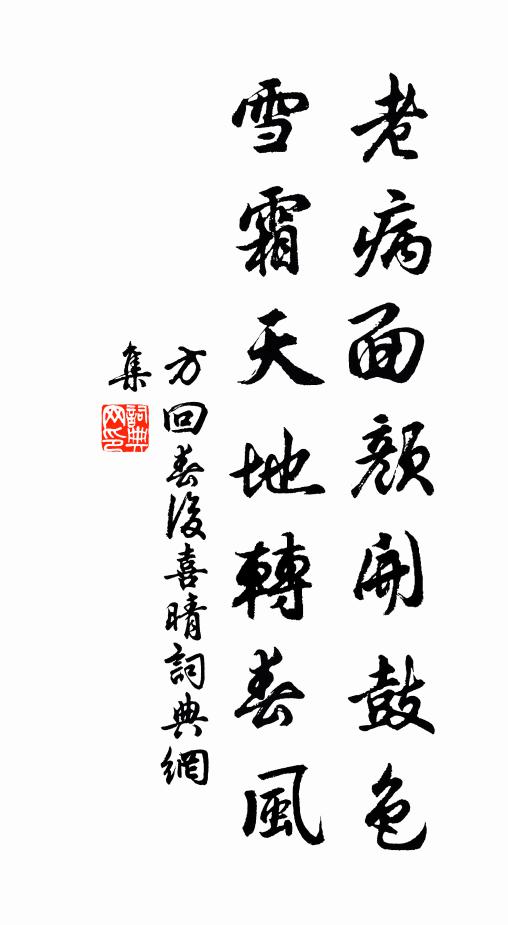 老病面顏開鼓色
雪霜天地轉春風
方回春後喜晴詞典網
集
詞典網印